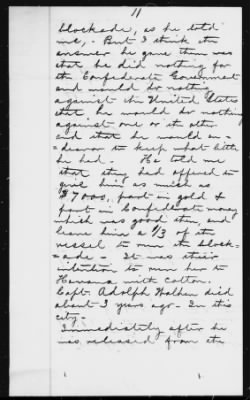 11
blockade, as he told
me,. But I think the
answer he gave them was
that he did nothing for
the Confederate Government
and would do nothing
against the United States
that he would do nothing
against one or the other
and that he would en-
=deavor to keep what little
he had. He told me
that they had offered to
give him as much as
$7000, part in gold &
part in Confederate money
which was good then, and
leave him a 1/3 of the
vessel to run the block-
=ade - It was their
intention to run her to
Havana with cotton.
Capt. Adolph Walken died
about 3 years ago - In this
city.
Immediately after he
was released from the